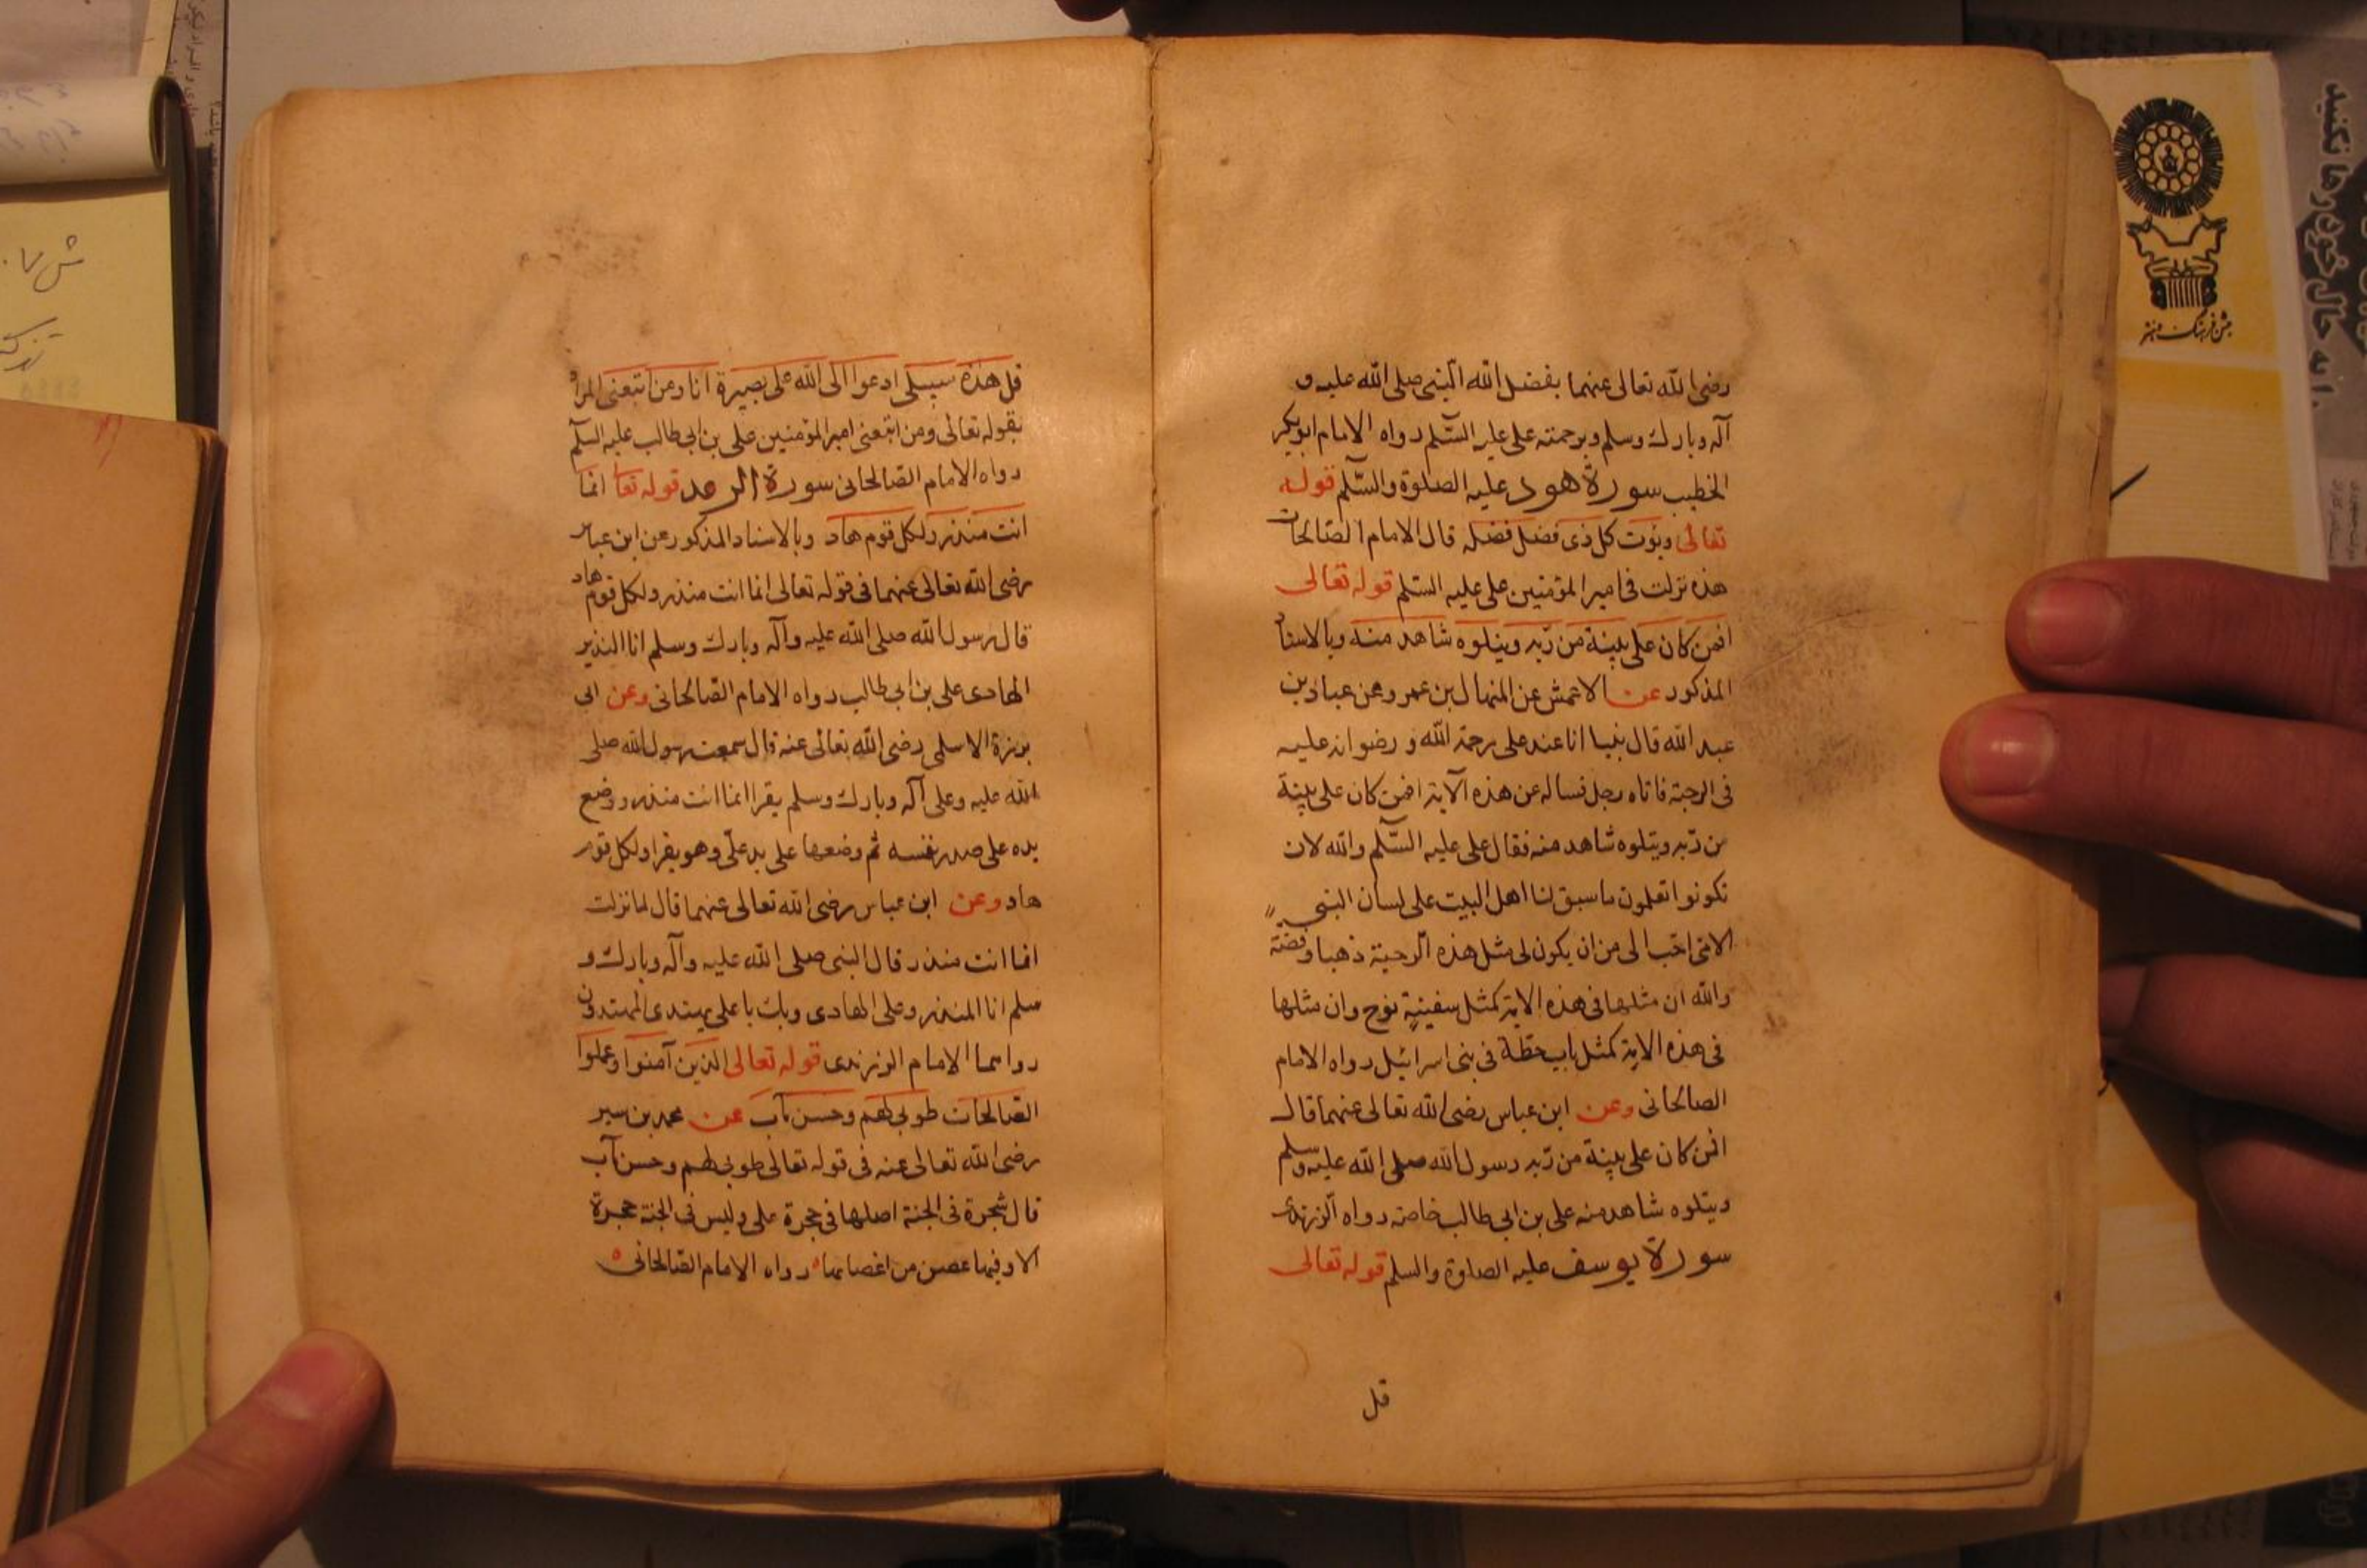 رضى الله تعالى عنهما بفضل الله النبى صلى الله عليه و
آله وبارك وسلم وبرحمته على عليه السّلم رواه الامام ابوبكر
الخطيب سورة هود عليه الصلوة والسّلم قوله
تعالى ويؤت كل ذى فضل فضله قال الامام الصالحانى
هذه نزلت فى امير المؤمنين على عليه السّلم قوله تعالى
افمن كان على بينة من ربه ويتلوه شاهد منه وبالاسناد
المذكور عن الاعمش عن المنهال بن عمرو عن عباد بن
عبد الله قال بينا انا عند على رحمة الله و رضوانه عليه
فى الرحبة فاتاه رجل فساله عن هذه الآية افمن كان على بينة
من ربه ويتلوه شاهد منه فقال على عليه السّلم والله لان
تكونوا تعلمون ما سبق لنا اهل البيت على لسان النبى
الامى احب الى من ان يكون لى مثل هذه الرحبة ذهبا وفضة
والله ان مثلها فى هذه الاية كمثل سفينة نوح وان مثلها
فى هذه الاية كمثل باب حطة فى بنى اسرائيل رواه الامام
الصالحانى وعن ابن عباس رضى الله تعالى عنهما قال
افمن كان على بينة من ربه رسول الله صلى الله عليه وسلم
ويتلوه شاهد منه على بن ابى طالب خاصة رواه الزرندى
سورة يوسف عليه الصلوة والسلم قوله تعالى
قل
قل هذه سبيلى ادعوا الى الله على بصيرة انا ومن اتبعنى المراد
بقوله تعالى ومن اتبعنى امير المؤمنين على بن ابى طالب عليه السلم
رواه الامام الصالحانى سورة الرعد قوله تعا انما
انت منذر ولكل قوم هاد وبالاسناد المذكور عن ابن عباس
رضى الله تعالى عنهما فى قوله تعالى انما انت منذر ولكل قوم هاد
قال رسول الله صلى الله عليه وآله وبارك وسلم انا النذير
الهادى على بن ابى طالب رواه الامام الصّالحانى وعن ابى
برزة الاسلمى رضى الله تعالى عنه قال سمعت رسول الله صلى
الله عليه وعلى آله وبارك وسلم يقرا انما انت منذر ووضع
يده على صدر نفسه ثم وضعها على يد على وهو يقرا ولكل قوم
هاد وعن ابن عباس رضى الله تعالى عنهما قال لما نزلت
انما انت منذر قال النبى صلى الله عليه وآله وبارك و
سلم انا المنذر وعلى الهادى وبك يا على يهتدى المهتدون
رواهما الامام الزرندى قوله تعالى الذين آمنوا وعملوا
الصّالحات طوبى لهم وحسن مآب عن محمد بن سير
رضى الله تعالى عنه فى قوله تعالى طوبى لهم وحسن مآب
قال شجرة فى الجنة اصلها فى حجرة على وليس فى الجنة حجرة
الا وفيها غصن من اغصانها رواه الامام الصّالحانى
جشن فرهنگ و هنر